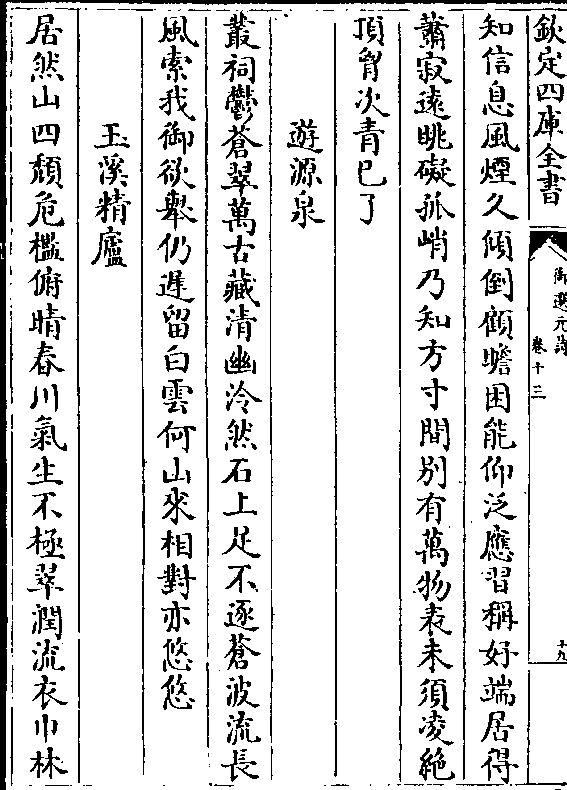 欽定四庫全書
御選元詩
卷十三
十九
知信息風煙久傾倒顧瞻困能仰泛應習稱好端居得
蕭寂遠眺礙孤峭乃知方寸間别有萬物表未須凌絶
頂胷次青已了
遊源泉
叢祠鬱蒼翠萬古藏清幽泠然石上足不逐蒼波流長
風索我御欲舉仍遲留白雲何山來相對亦悠悠
玉溪精廬
居然山四頽危檻俯晴春川氣生不極翠潤流衣巾林